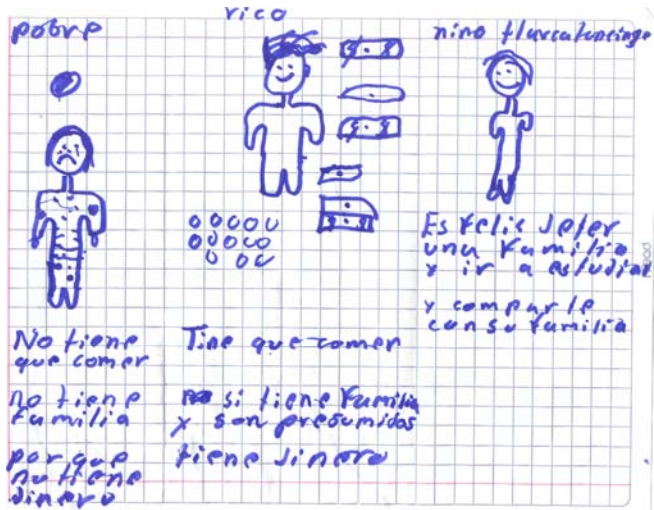 pobre
No tiene
que comer
no tiene
familia
por que
no tiene
dinero
rico
Tine que comer
si tiene familia
y son presumidos
tiene dinero
nino
Es felis
una familia
y ir a estudiar
y comparte
con su familia